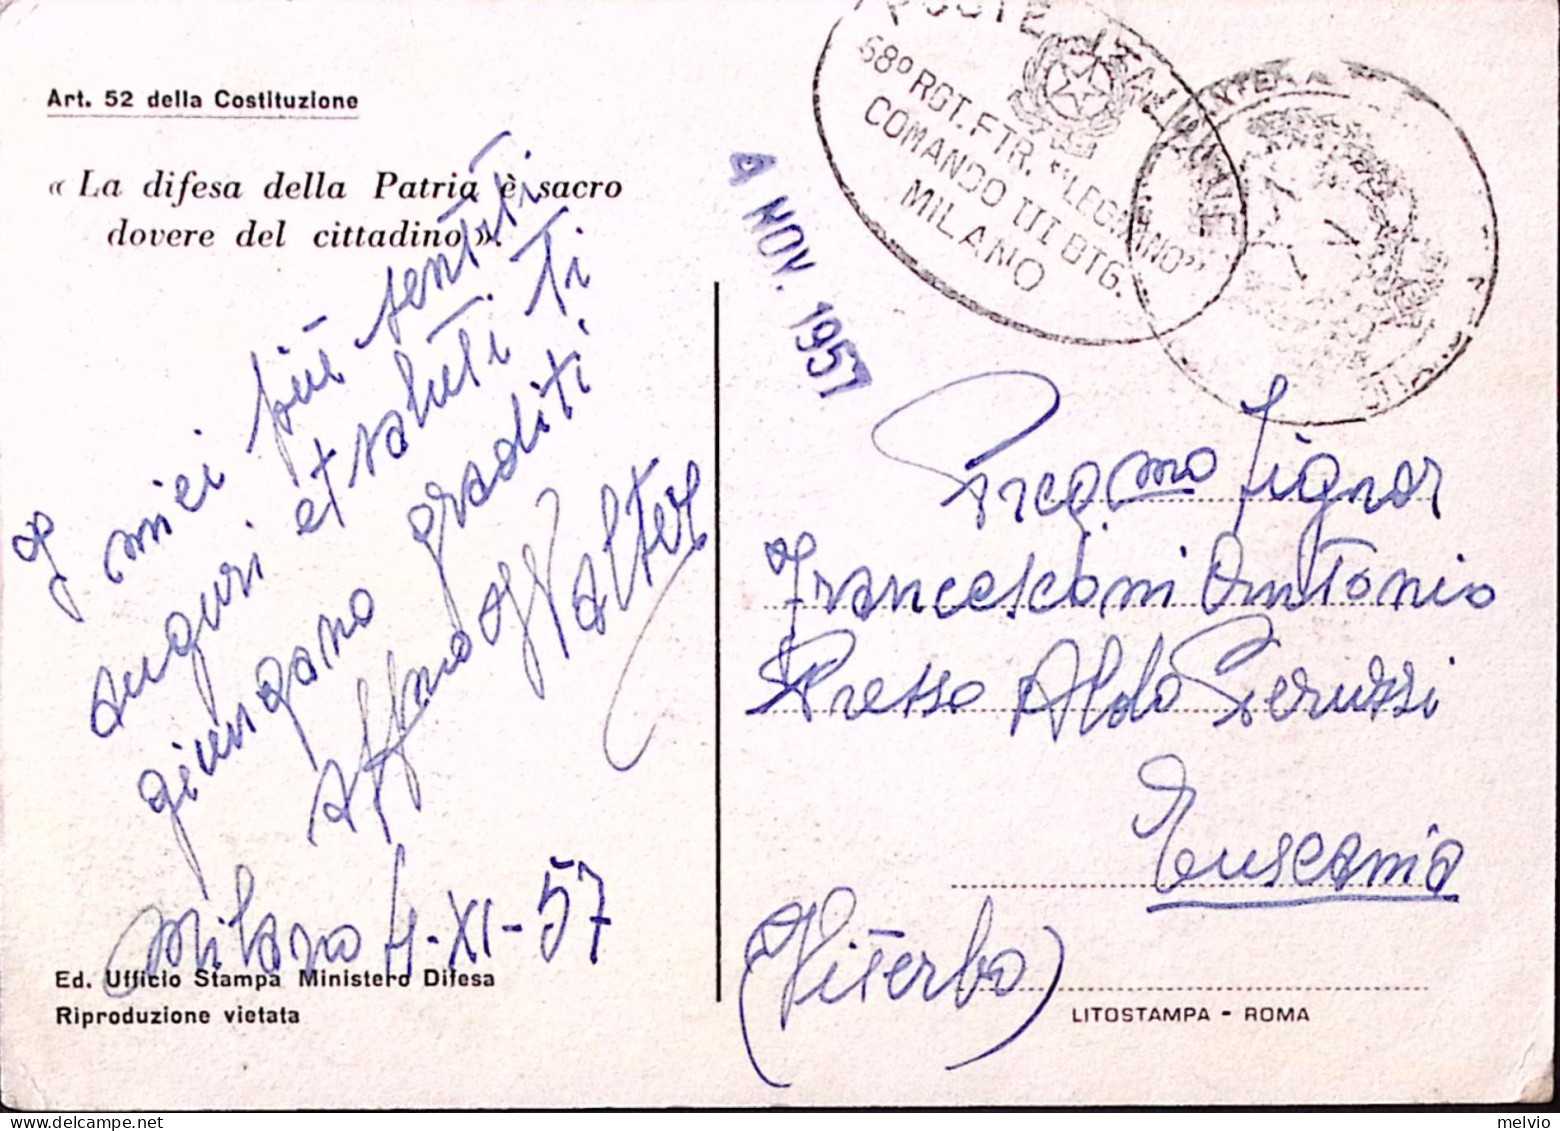 Art. 52 della Costituzione
« La difesa della Patria è sacro
dovere del cittadino ».
I miei più sentiti
auguri et saluti. Ti
giungano graditi
Walter
Milano 4-XI-57
Ed. Ufficio Stampa Ministero Difesa
Riproduzione vietata
POSTE ITALIANE
68° RGT. FTR. "LEGNANO"
COMANDO III BTG.
MILANO
4 NOV. 1957
Preg.mo Signor
Francesconi Antonio
Presso Aldo Peruzzi
Tuscania
(Viterbo)
LITOSTAMPA - ROMA
melvio